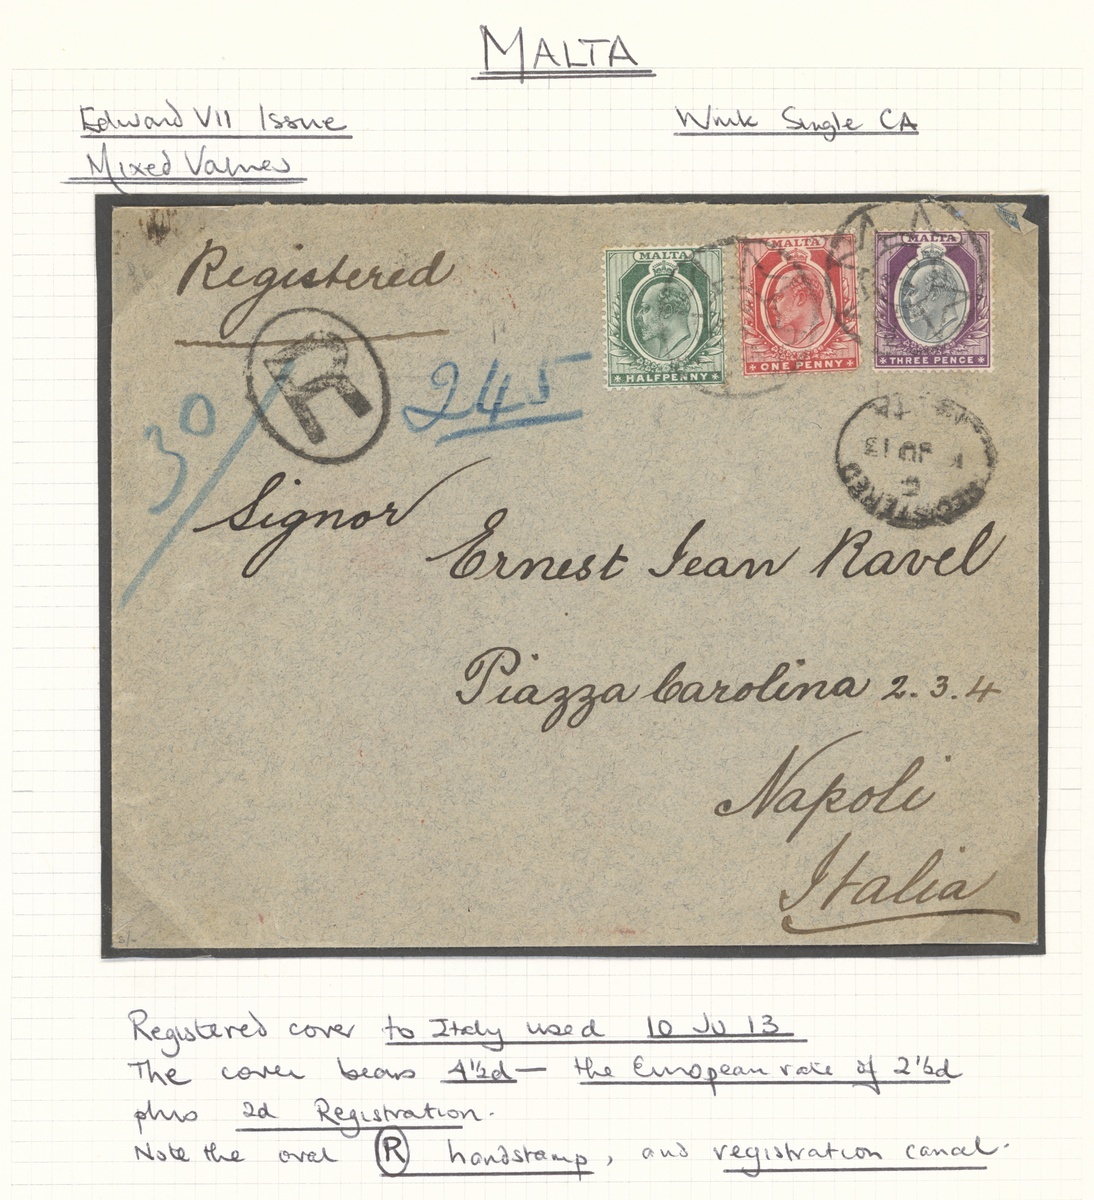 MALTA
Edward VII Issue
Wmk Single CA
Mixed Values
Registered
R
30/
245
MALTA
HALFPENNY
MALTA
ONE PENNY
MALTA
THREE PENCE
JU 13
Signor
Ernest Jean Ravel
Piazza Carolina 2.3.4
Napoli
Italia
5/-
Registered cover to Italy used 10 JU 13
The cover bears 4½d — the European rate of 2½d
plus 2d Registration.
Note the oval R handstamp, and registration cancel.